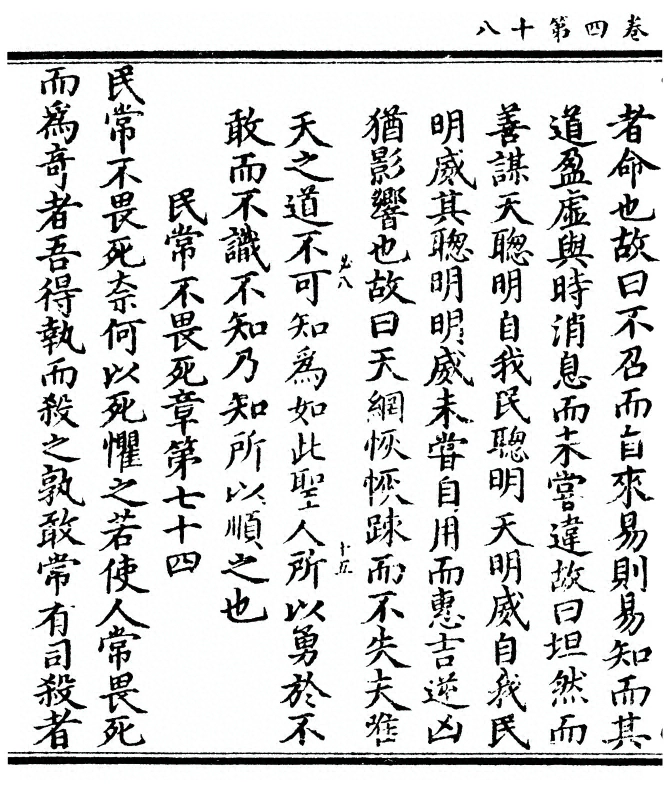 卷四第十八
者命也故曰不召而自來易則易知而其
道盈虛與時消息而未嘗違故曰坦然而
善謀天聰明自我民聰明天明威自我民
明威其聰明明威未嘗自用而惠吉逆凶
猶影響也故曰天網恢恢踈而不失夫唯
天之道不可知爲如此聖人所以勇於不
敢而不識不知乃知所以順之也
民常不畏死章第七十四
民常不畏死奈何以死懼之若使人常畏死
而爲奇者吾得執而殺之孰敢常有司殺者